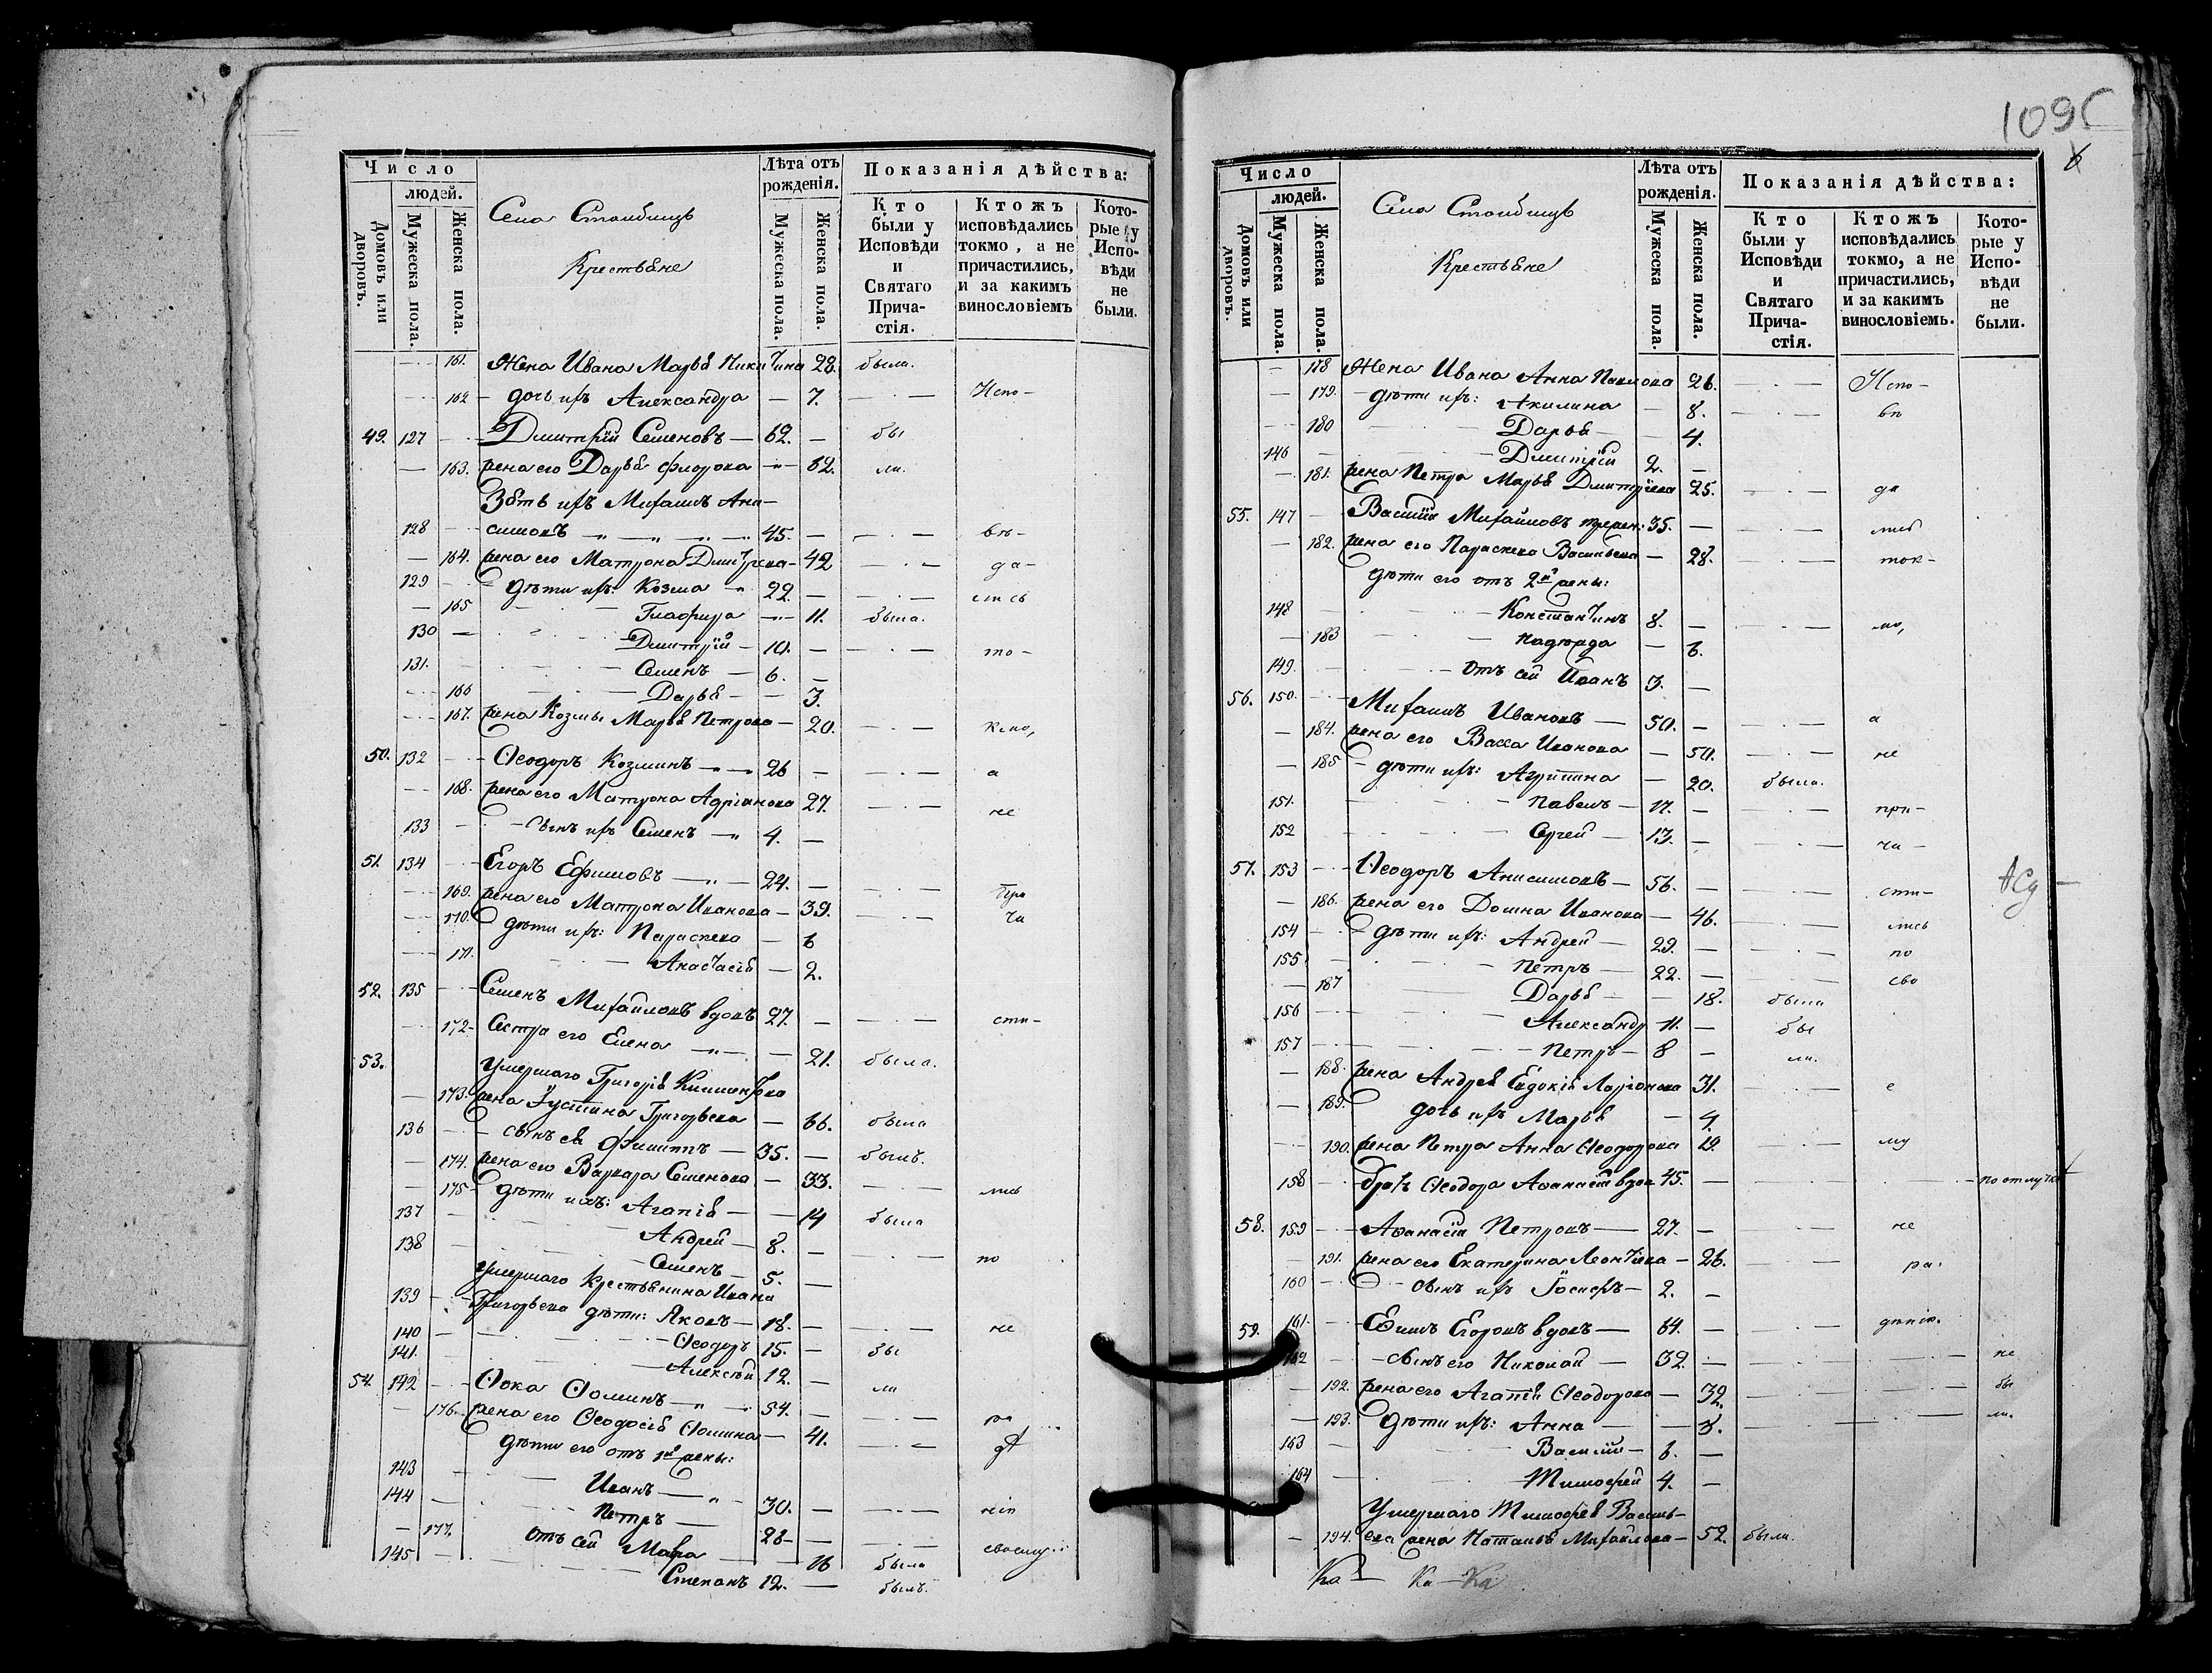 Число
людей.
Домовъ или дворовъ.
Мужеска пола.
Женска пола.
Крестьяне
Лѣта отъ рожденія.
Мужеска пола.
Женска пола.
Показанія дѣйства:
Кто были у Исповѣди и Святаго Прича-стія.
Ктожъ исповѣдались токмо, а не причастились, и за какимъ винословіемъ
Кото-рые у Испо-вѣди не были.
161. Жена Ивана Марья Никитина 28. была.
162 дочь ихъ Александра — 7. Испо-
49. 127 Дмитрій Семеновъ — 62. — бы
163. жена его Дарья Флорова — 62. ли.
Зять ихъ Михаилъ Ани-
128 симовъ 45. — въ-
164. жена его Матрона Дмитріева — 42 да-
129 дѣти ихъ: Козма 22. — лись
165 Глафира 11. была.
130 Дмитрій — 10. — то-
131. Семенъ — 6. —
166 Дарья — 3.
167. жена Козмы Марья Петрова — 20. кмо,
50. 132 Ѳеодоръ Козминъ 26 — а
168. жена его Матрона Адріанова 27. не
133 сынъ ихъ Семенъ 4. —
51. 134 Егоръ Ефимовъ 24. — При
169. жена его Матрона Иванова — 39. ча
170. дѣти ихъ: Параскева — 6
171. Анастасія — 2.
52. 135 Семенъ Михайловъ вдовъ 27. — сти-
172. Сестра его Елена — 21. была.
53. Умершаго Григорія Климентова
173. жена Іустина Григорьева — 66. была
136 сынъ ея Филиппъ — 35. — былъ.
174. жена его Варвара Семенова — 33. лись
175 дѣти ихъ: Агапія — 14 была
137 Андрей — 8. — по
138 Семенъ — 5. —
Умершаго крестьянина Ивана
139 Григорьева дѣти: Яковъ — 18. — не
140 Ѳеодоръ 15. — бы
141. Алексѣй 12. — ли
54. 142 Ѳока Ѳоминъ 54. — ра
176. жена его Ѳеодосія Ѳомина — 41. дѣ
дѣти его отъ 1й жены:
143 Иванъ 30. — нію
144 Петръ 26 — своему
177. отъ сей Мавра 16 была
145 Степанъ 12. — былъ.
109
Число
людей.
Домовъ или дворовъ.
Мужеска пола.
Женска пола.
Крестьяне
Лѣта отъ рожденія.
Мужеска пола.
Женска пола.
Показанія дѣйства:
Кто были у Исповѣди и Святаго Прича-стія.
Ктожъ исповѣдались токмо, а не причастились, и за какимъ винословіемъ.
Кото-рые у Испо-вѣди не были.
178 Жена Ивана Анна Павлова 26. Испо-
179. дѣти ихъ: Акилина — 8. въ
180 Дарья — 4.
146 Дмитрій 2. —
181. жена Петра Марья Дмитріева 25. да
55. 147 Василій Михайловъ 35. — лись
182. жена его Параскева Васильева — 28. ток-
дѣти его отъ 2й жены:
148 Константинъ 8. — мо,
183 Надежда — 6.
149. отъ сей Иванъ 3. —
56. 150. Михаилъ Ивановъ — 50. — а
184. жена его Васса Иванова — 50. не
185 дѣти ихъ: Агрипина — 20. была.
151. Павелъ — 17. — при-
152 Сергей — 13. — ча-
57. 153 Ѳеодоръ Анисимовъ — 56. — сти-
186. жена его Домна Иванова — 46. лись
154 дѣти ихъ: Андрей — 29. — по
155 Петръ — 22. — сво
187 Дарья — 18. была
156 Александр 11. — бы
157 Петръ — 8 — ли.
188. жена Андрея Евдокія Ларіонова 31. е
189. дочь ихъ Марья — 4.
190. жена Петра Анна Ѳеодорова 19. му
158 братъ Ѳеодора Аѳанасій вдов 45. — по отлучке
58. 159 Аѳанасій Петровъ — 27. — не
191. жена его Екатерина Леонтіева — 26. ра.
160 сынъ ихъ Іосифъ — 2. —
59. 161. Ефимъ Егоровъ вдовъ — 64. — дѣнію.
162 сынъ его Николай — 32. — не
192. жена его Агапія Ѳеодорова — 32. бы
193. дѣти ихъ: Анна — 8. ли.
163 Василій — 6. —
164 Тимофей 4. —
Умершаго Тимофея Василь-
194. ева жена Наталья Михайлова — 52. была.
Ка Ка-Ка